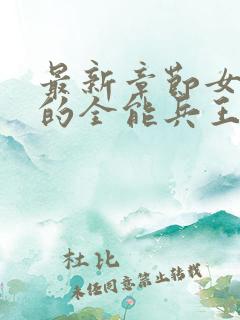 最新章节女
的全能兵王
杜比
未经同意禁止转载